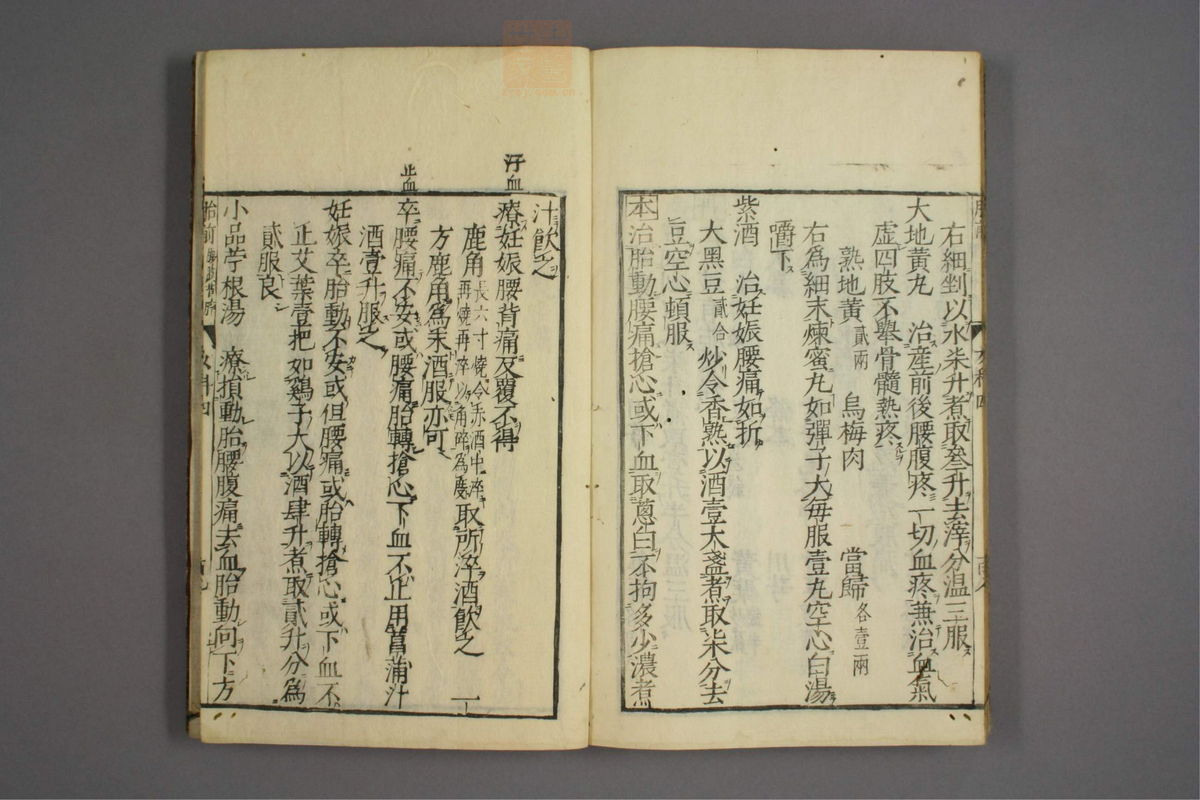 右細剉以水柒升煮取叄升去滓分温三服
大地黃丸　治産前後腰腹疼一切血疼兼治血氣
虚四肢不舉骨髓熱疼
熟地黃貳兩　烏梅肉　當歸各壹兩
右爲細末煉蜜丸如彈子大每服壹丸空心白湯
嚼下
紫酒　治妊娠腰痛如折
大黑豆貳合炒令香熟以酒壹大盞煮取柒分去
豆空心頓服
本治胎動腰痛搶心或下血取葱白不拘多少濃煮
汁飲之
療妊娠腰背痛反覆不得
鹿角長六寸燒令赤酒中淬再燒再淬以角碎爲度取所淬酒飲之　一
方鹿角爲末酒服亦可
止血
卒腰痛不安或腰痛胎轉搶心下血不止用菖蒲汁
酒壹升服之
妊娠卒胎動不安或但腰痛或胎轉搶心或下血不
止艾葉壹把如鷄子大以酒肆升煮取貳升分爲
貳服良
小品苧根湯　療損動胎腰腹痛去血胎動向下方
胎前
女科四